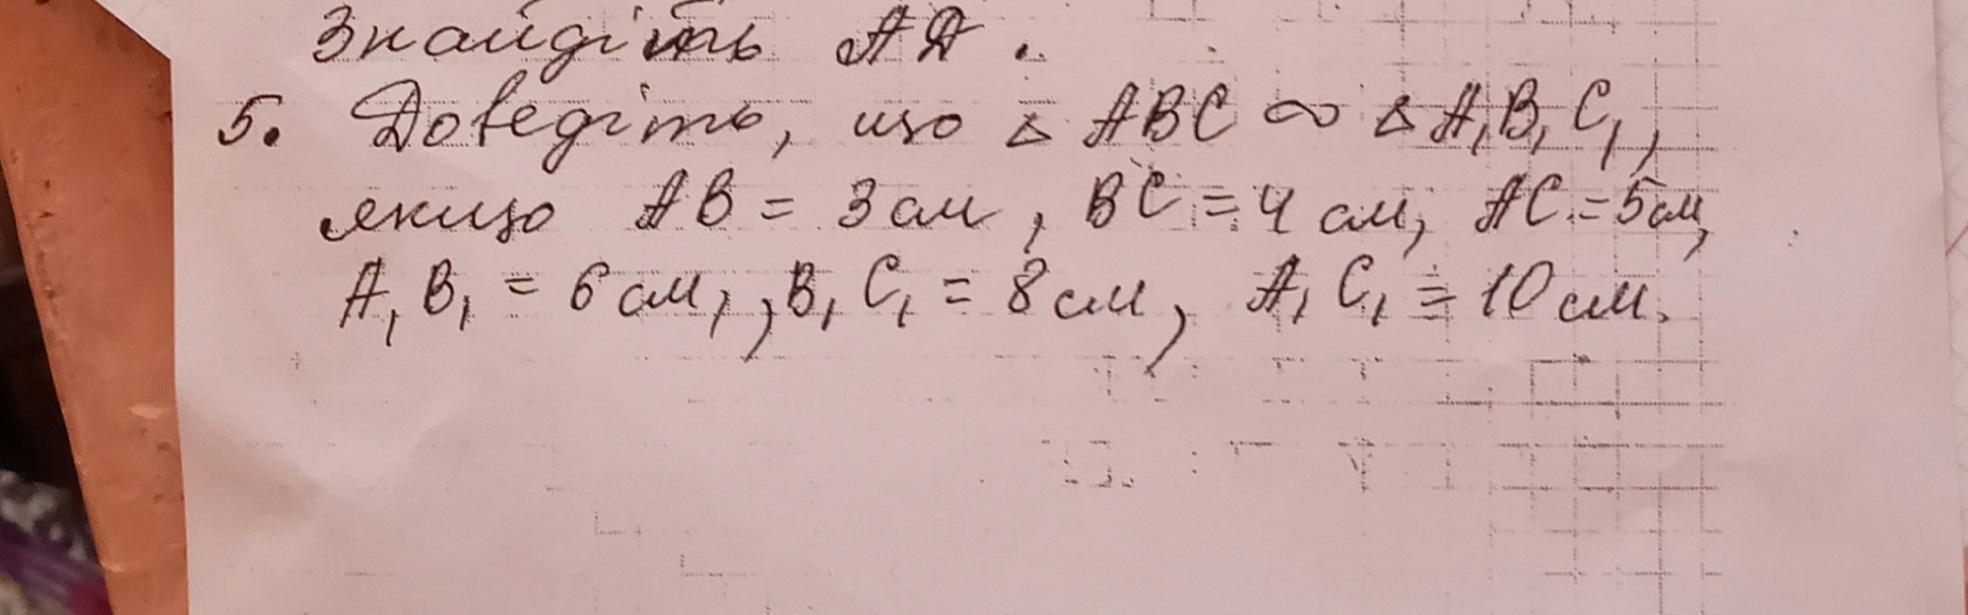 Знайдіть АД.
5. Доведіть, що △ ABC ∞ △ A₁B₁C₁,
якщо AB = 3 см, BC = 4 см, AC = 5см,
A₁B₁ = 6 см, , B₁C₁ = 8 см, A₁C₁ = 10 см.